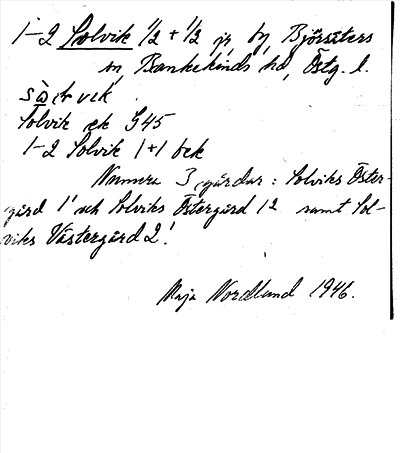 1-2 Solvik 1/2 + 1/2 jr, by Björsäters
sn, Bankekinds hd, Östg. l.
Solvik ek G45
1-2 Solvik 1+1 bek
Numera 3 gårdar: Solviks Öster-
gård 1' och Solviks Östergård 1² samt Sol-
viks Västergård 2'.
Maja Nordlund 1946.